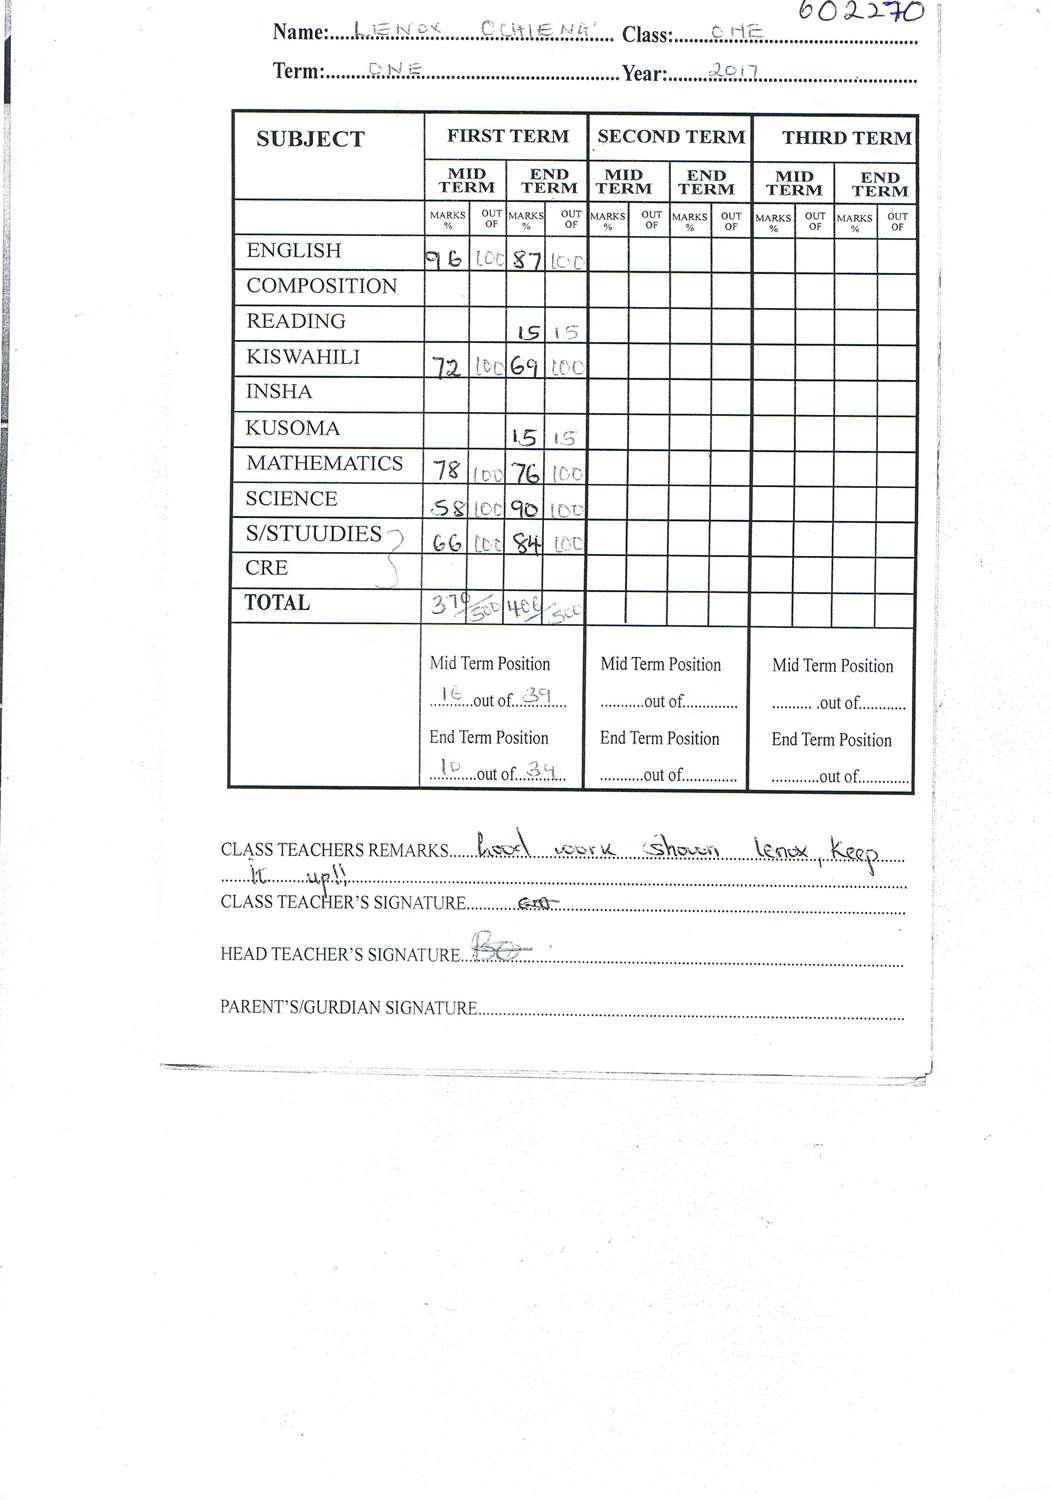 602270
Name:....LENOX OCHIENG'.... Class:....ONE....
Term:....ONE.... Year:....2017....
SUBJECT FIRST TERM SECOND TERM THIRD TERM
MID TERM END TERM MID TERM END TERM MID TERM END TERM
MARKS % OUT OF MARKS % OUT OF MARKS % OUT OF MARKS % OUT OF MARKS % OUT OF MARKS % OUT OF
ENGLISH 96 100 87 100
COMPOSITION
READING 15 15
KISWAHILI 72 100 69 100
INSHA
KUSOMA 15 15
MATHEMATICS 78 100 76 100
SCIENCE 58 100 90 100
S/STUUDIES 66 100 84 100
CRE
TOTAL 370/500 406/500
Mid Term Position Mid Term Position Mid Term Position
16 out of 39 ...........out of............. .......... .out of............
End Term Position End Term Position End Term Position
10 out of 39 ...........out of............. ............out of.............
CLASS TEACHERS REMARKS......Good work shown lenox, Keep
it up!!
CLASS TEACHER'S SIGNATURE..........
HEAD TEACHER'S SIGNATURE..........
PARENT'S/GURDIAN SIGNATURE..........